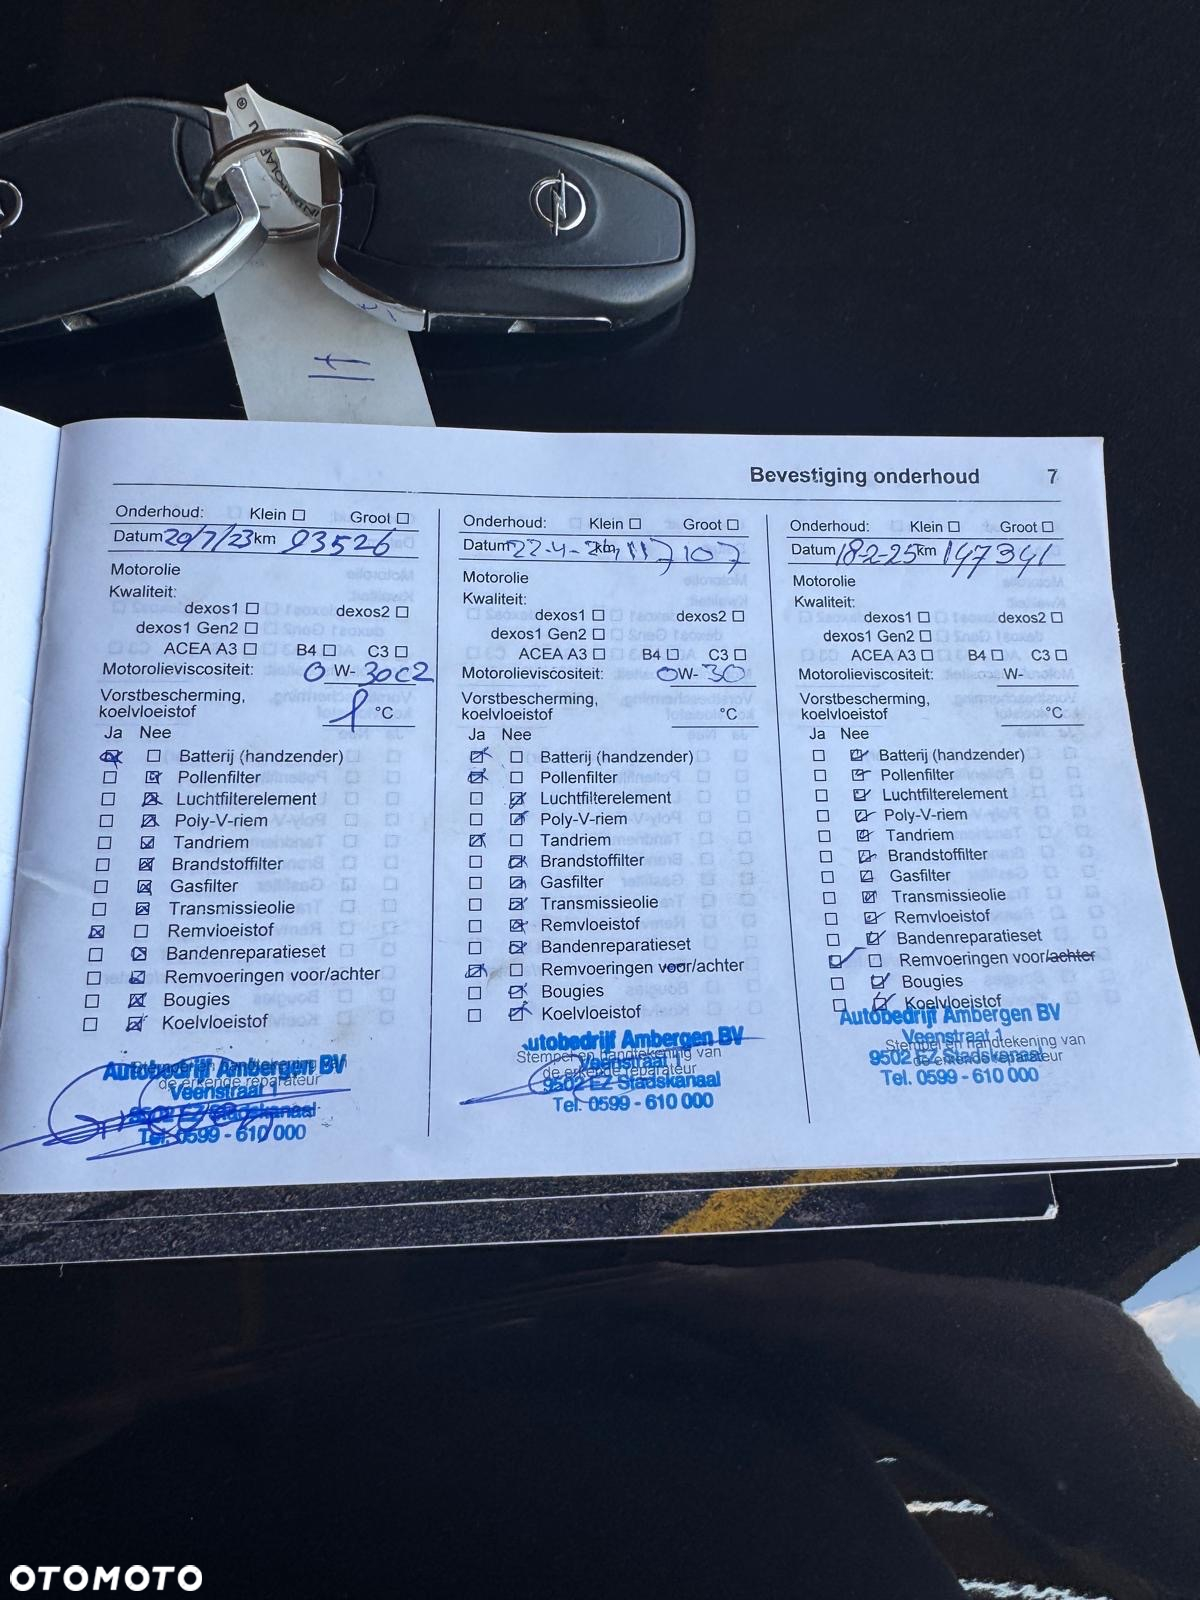 Bevestiging onderhoud 7
Onderhoud: Klein Groot
Datum 20/7/23 km 93526
Motorolie
Kwaliteit:
dexos1 dexos2
dexos1 Gen2
ACEA A3 B4 C3
Motorolieviscositeit: 0 W- 30 C2
Vorstbescherming,
koelvloeistof °C
Ja Nee
Batterij (handzender)
Pollenfilter
Luchtfilterelement
Poly-V-riem
Tandriem
Brandstoffilter
Gasfilter
Transmissieolie
Remvloeistof
Bandenreparatieset
Remvoeringen voor/achter
Bougies
Koelvloeistof
Stempel en handtekening van
de erkende reparateur
Autobedrijf Ambergen BV
Veenstraat 1
9502 EZ Stadskanaal
Tel. 0599 - 610 000
Onderhoud: Klein Groot
Datum 22-4- km 117107
Motorolie
Kwaliteit:
dexos1 dexos2
dexos1 Gen2
ACEA A3 B4 C3
Motorolieviscositeit: 0 W- 30
Vorstbescherming,
koelvloeistof °C
Ja Nee
Batterij (handzender)
Pollenfilter
Luchtfilterelement
Poly-V-riem
Tandriem
Brandstoffilter
Gasfilter
Transmissieolie
Remvloeistof
Bandenreparatieset
Remvoeringen voor/achter
Bougies
Koelvloeistof
Stempel en handtekening van
de erkende reparateur
utobedrijf Ambergen BV
Veenstraat 1
9502 EZ Stadskanaal
Tel. 0599 - 610 000
Onderhoud: Klein Groot
Datum 18-2-25 km 147341
Motorolie
Kwaliteit:
dexos1 dexos2
dexos1 Gen2
ACEA A3 B4 C3
Motorolieviscositeit: W-
Vorstbescherming,
koelvloeistof °C
Ja Nee
Batterij (handzender)
Pollenfilter
Luchtfilterelement
Poly-V-riem
Tandriem
Brandstoffilter
Gasfilter
Transmissieolie
Remvloeistof
Bandenreparatieset
Remvoeringen voor/achter
Bougies
Koelvloeistof
Stempel en handtekening van
de erkende reparateur
Autobedrijf Ambergen BV
Veenstraat 1
9502 EZ Stadskanaal
Tel. 0599 - 610 000
OTOMOTO